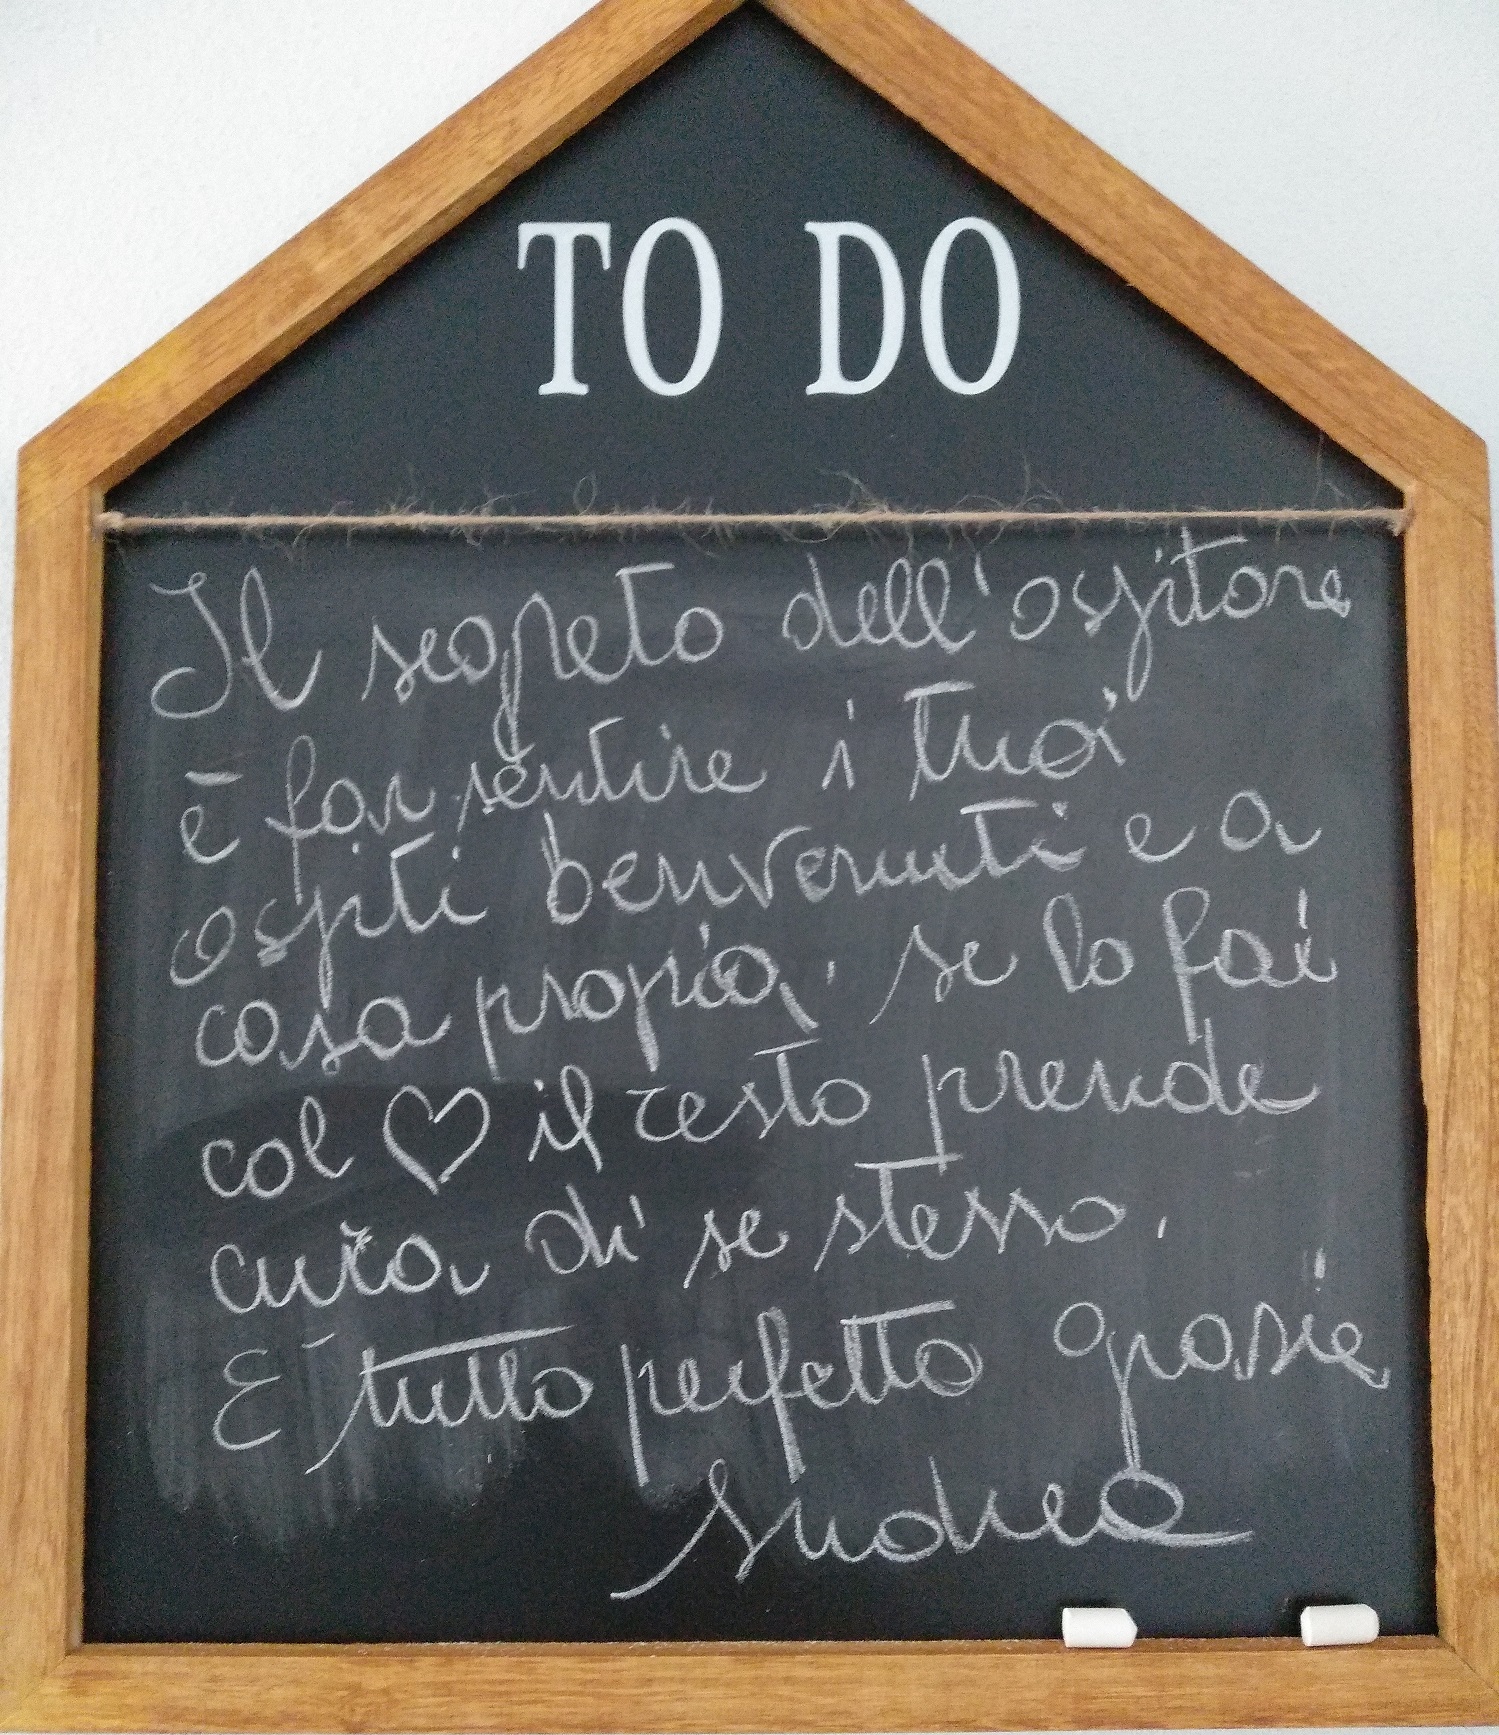 TO DO
Il segreto dell'ospitare
è far sentire i tuoi
ospiti benvenuti e a
casa propria, se lo fai
col ♡ il resto prende
cura di se stesso.
È tutto perfetto grazie
Andrea